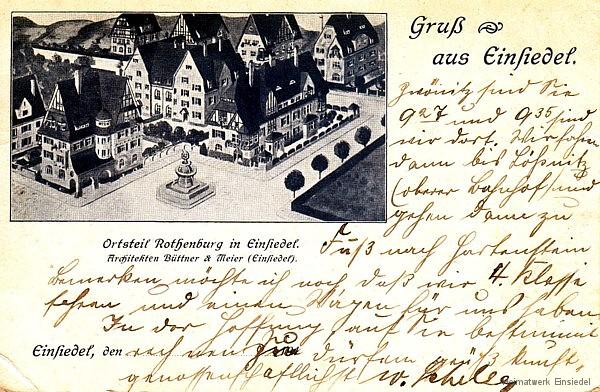 Gruß
aus Einsiedel.
Zwönitz sind Sie
9 27 und 9 35 sind
wir dort. Wir fahren
dann bis Lößnitz
(oberer Bahnhof) und
gehen dann zu
Fuß nach Hartenstein
Bemerken möchte ich noch daß wir 4. Klasse
fahren und einen Wagen für uns haben
In der Hoffnung auf in bestimmt
rechnen zu dürfen grüßt
genossenschaftlichst
Ortsteil Rothenburg in Einsiedel.
Architekten Büttner & Meier (Einsiedel).
Einsiedel, den
Heimatwerk Einsiedel